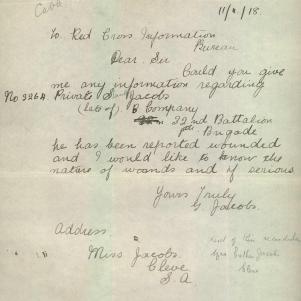 Cable
11/9/18
To Red Cross Information
Bureau
Dear Sir
Could you give
me any information regarding
No 2264. Private Jacobs
(late of) B Company
22nd Battalion
Brigade
he has been reported wounded
and I would like to know the
nature of wounds and if serious
Yours Truly
G. Jacobs.
Address.
Miss Jacobs.
Cleve
S. A
next of kin
Mrs Jacobs
Cleve